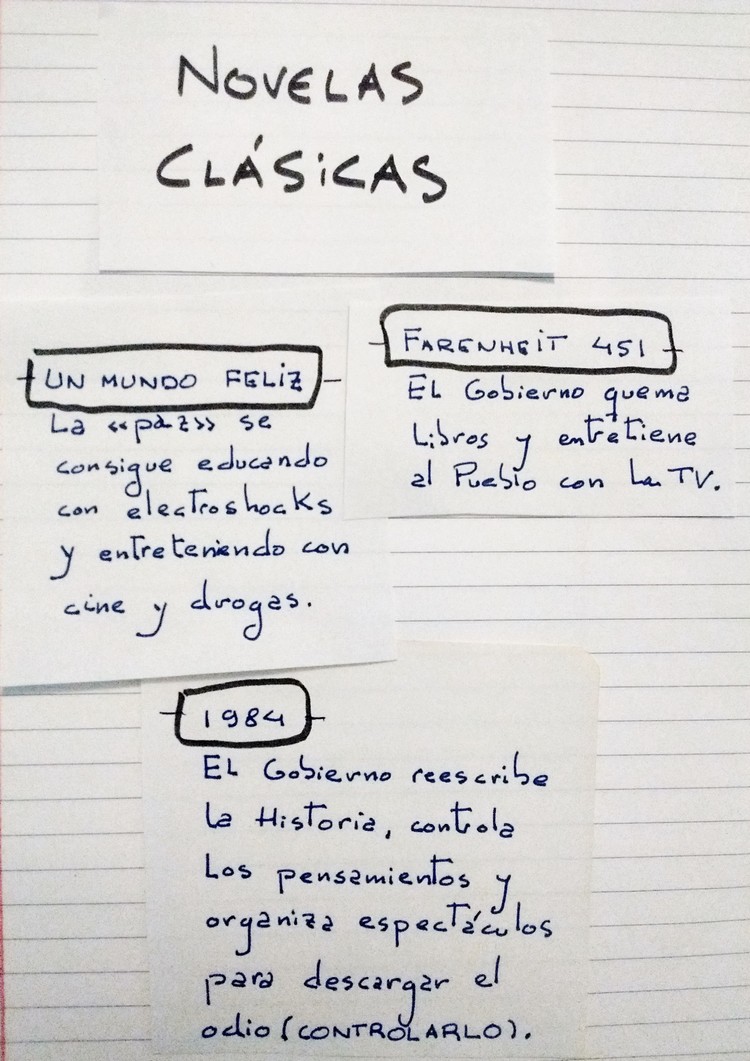 NOVELAS
CLÁSICAS
UN MUNDO FELIZ
La «paz» se
consigue educando
con electroshocks
y entreteniendo con
cine y drogas.
FARENHEIT 451
EL Gobierno quema
Libros y entretiene
al Pueblo con La TV.
1984
EL Gobierno reescribe
la Historia, controla
Los pensamientos y
organiza espectáculos
para descargar el
odio (CONTROLARLO).